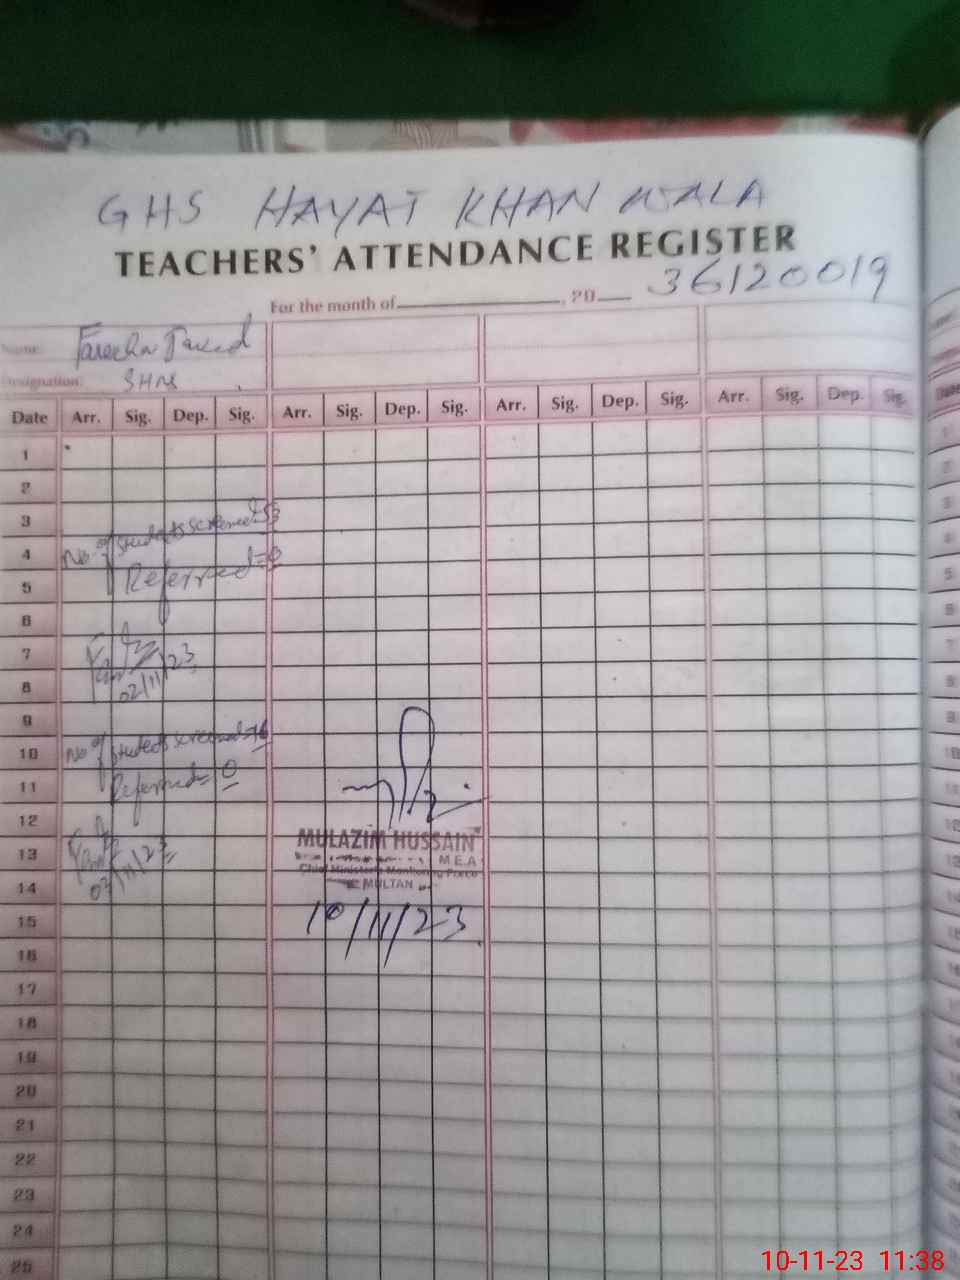 GHS HAYAT KHAN WALA
TEACHERS' ATTENDANCE REGISTER
36120019
For the month of , 20
Name:
Designation: SHNS
Date Arr. Sig. Dep. Sig. Arr. Sig. Dep. Sig. Arr. Sig. Dep. Sig. Arr. Sig. Dep. Sig.
1
2
3
4
No of students screened
5
Referred=
6
7
02/11/23
8
9
10
No of students screened=
11
Referred= 0
12
13
MULAZIM HUSSAIN
M.E.A
Chief Minister's Monitoring Force
14
MULTAN
15
10/11/23
16
17
18
19
20
21
22
23
24
25
10-11-23 11:38